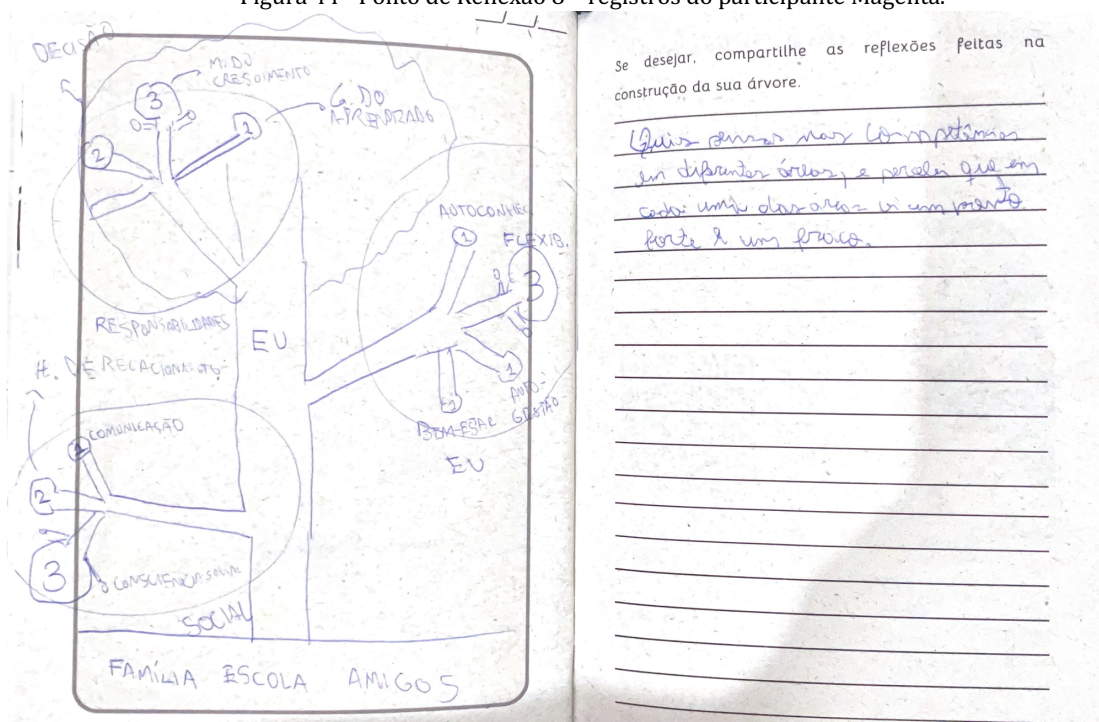 Figura 44 - Ponto de Reflexão 8 – registros do participante Magenta.
DECISÃO
M. DO
CRESCIMENTO
3
2
2
G. DO
APRENDIZADO
RESPONSABILIDADES
EU
AUTOCONHEC.
1
FLEXIB.
3
1
AUTO-
GESTÃO
BEM-ESTAR
EU
H. DE RELACIONAMTO
COMUNICAÇÃO
1
2
3
CONSCIÊNCIA SOCIAL
SOCIAL
FAMÍLIA ESCOLA AMIGOS
Se desejar, compartilhe as reflexões feitas na
construção da sua árvore.
Quis pensar nas competências
em diferentes áreas, e percebi que em
cada uma das áreas vi um ponto
forte e um fraco.